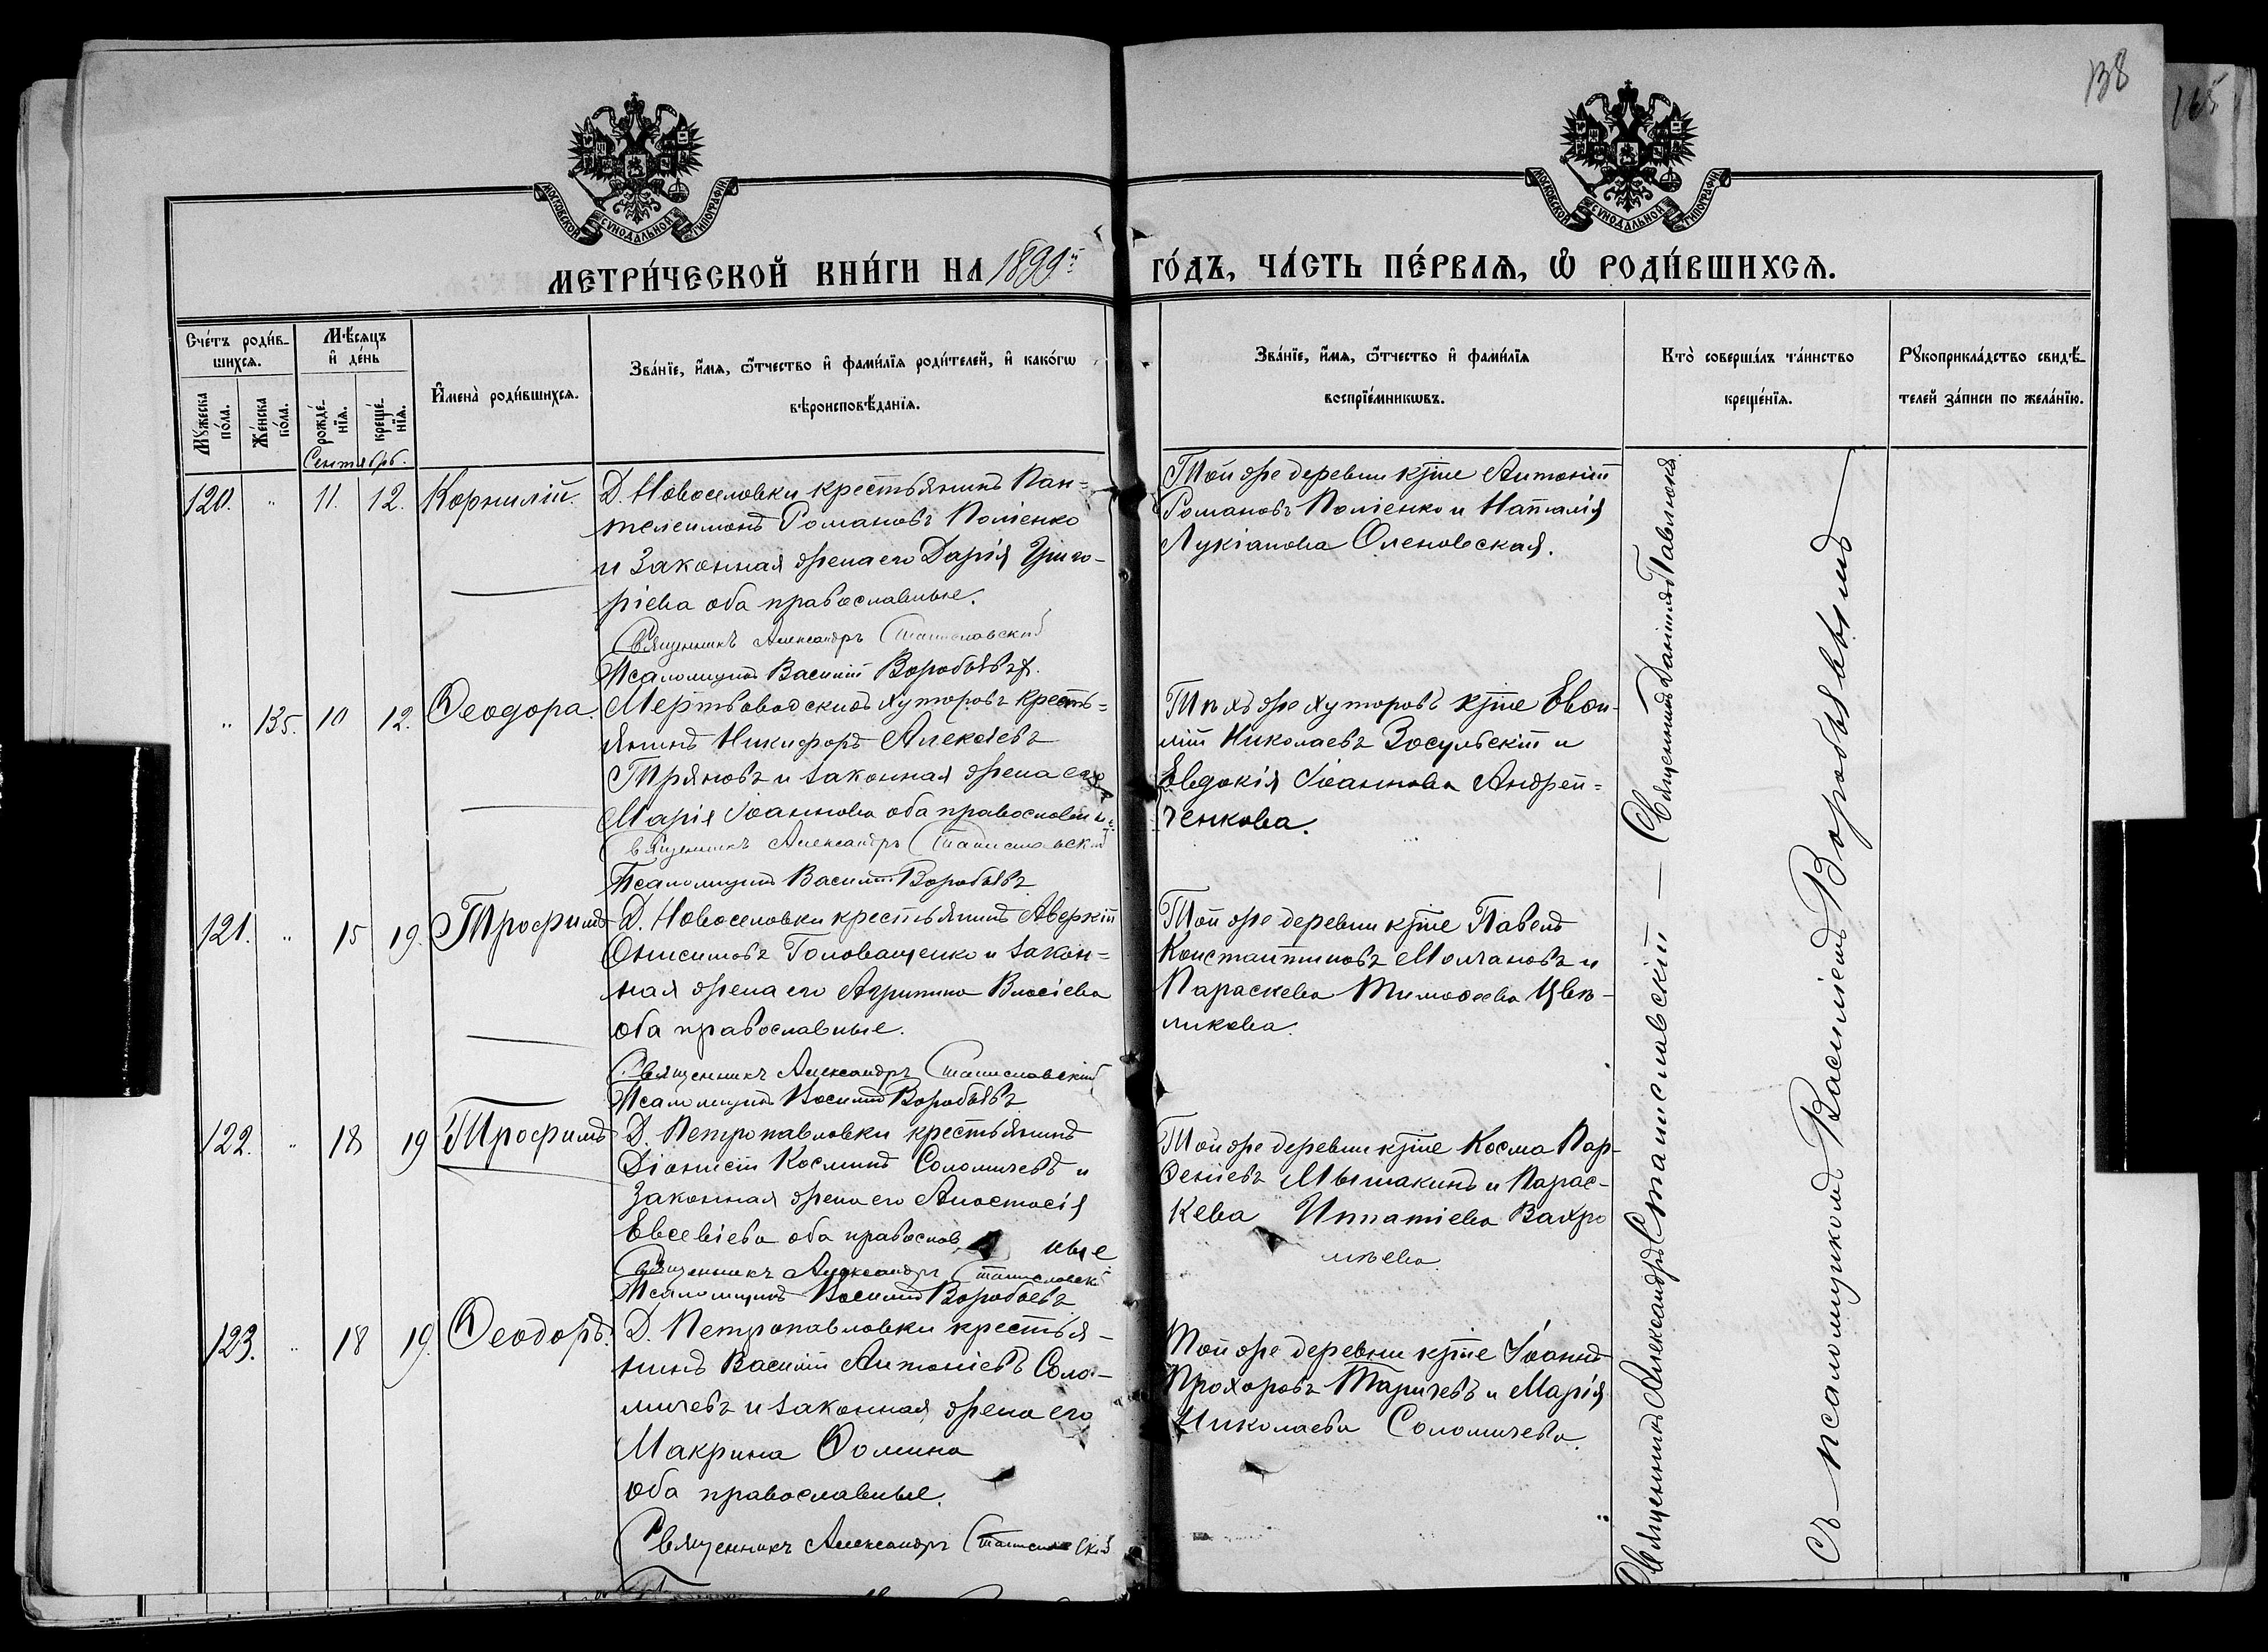 138
165
МОСКОВСКОЙ СѴНОДАЛЬНОЙ ТИПОГРАФІИ
МОСКОВСКОЙ СѴНОДАЛЬНОЙ ТИПОГРАФІИ
МЕТРИ́ЧЕСКОЙ КНИ́ГИ НА 1899й ГО́ДЪ, ЧА́СТЬ ПЕ́РВАЯ, Ѡ РОДИ́ВШИХСЯ.
Сче́тъ роди́в-
шихся.
Мѣ́сяцъ
и҆ де́нь
Му́жеска по́ла.
Же́нска по́ла.
рожде́-нїя.
креще́-нїя.
И҆мена̀ роди́вшихся.
Зва́нїе, и҆́мя, ѻ҆́тчество и҆ фами́лїя роди́телей, и҆ како́гѡ
вѣроисповѣ́данїя.
Зва́нїе, и҆́мя, ѻ҆́тчество и҆ фами́лїя
воспрїе́мникѡвъ.
Кто̀ соверша́лъ та́инство
креще́нїя.
Рꙋкоприкла́дство свидѣ́-
телей за́писи по жела́нїю.
Сентябрь.
120. " 11. 12. Корнилій. Д. Новоселовки крестьянинъ Пан-
телеимонъ Романовъ Поліенко
и законная жена его Дарія Григо-
ріева оба православные.
Священникъ Александръ Станиславскій
Псаломщикъ Василій Воробьевъ
Той же деревни кр̃не Антоній
Романовъ Поліенко и Наталія
Лукіанова Оленовская.
" 135. 10 12. Ѳеодора. Мертвоводскихъ хуторовъ кресть-
янинъ Никифоръ Алексѣевъ
Тряновъ и законная жена его
Марія Іоаннова оба православны
Священникъ Александръ Станиславскій
Псаломщикъ Василій Воробьевъ
Тѣхъ же хуторовъ кр̃не Евѳи-
мій Николаевъ Зосульскій и
Евдокія Іоаннова Андрей-
ченкова.
121. " 15 19. Трофимъ Д. Новоселовки крестьянинъ Аверкій
Онисимовъ Головащенко и закон-
ная жена его Агрипина Власіева
оба православные.
Священникъ Александръ Станиславскій
Псаломщикъ Василій Воробьевъ
Той же деревни кр̃не Павелъ
Константиновъ Молчановъ и
Параскева Тимоѳеева Цвѣ-
ликова.
122. " 18 19 Трофимъ Д. Петропавловки крестьянинъ
Діонисій Косминъ Соломичевъ и
законная жена его Анастасія
Евсевіева оба православ ные
Священникъ Александръ Станиславскій
Псаломщикъ Василій Воробьевъ
Той же деревни кр̃не Косма Пар-
ѳеніевъ Мытакинъ и Парас-
кева Ипатіева Вахро
мѣева.
123. " 18 19. Ѳеодоръ. Д. Петропавловки крестья-
нинъ Василій Антоніевъ Соло-
мичевъ и законная жена его
Макрина Ѳомина
оба православные.
Священникъ Александръ Станиславскій
Той же деревни кр̃не Іоаннъ
Прохоровъ Таричевъ и Марія
Николаева Соломичева.
Священникъ Александръ Станиславскій — Священникъ Даніилъ Павлюкъ.
съ псаломщикомъ Василіемъ Воробьевымъ